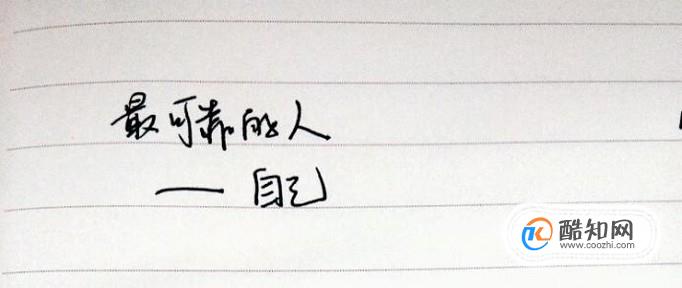 最可靠的人
——自己
酷知网
www.coozhi.com